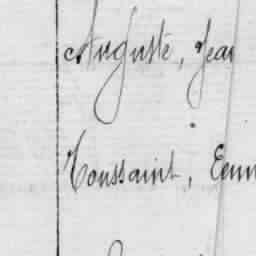 Auguste, Jean
Toussaint,